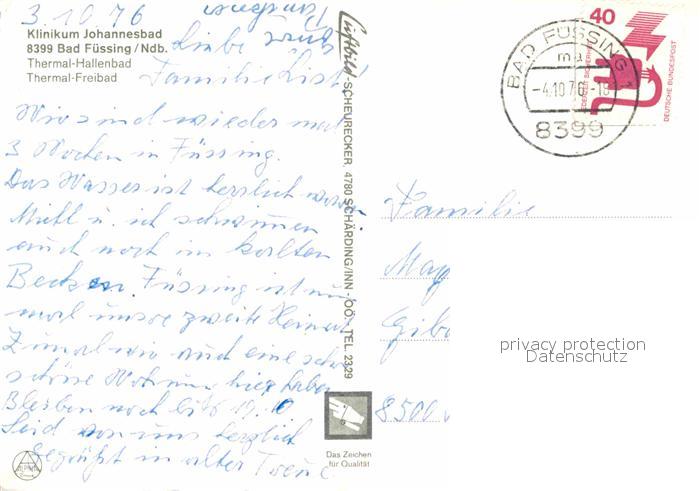 3.10.76
Klinikum Johannesbad
8399 Bad Füssing / Ndb.
Thermal-Hallenbad
Thermal-Freibad
Liebe
Familie List!
Wir sind wieder mal
3 Wochen in Füssing.
Das Wasser ist herrlich warm
u. ich schwimmen
auch noch im kalten
Becken. Füssing ist nun
mal unsre zweite Heimat
Zumal wir auch eine sehr
schöne Wohnung hier haben
Bleiben noch bis 19.10
Seid von uns herzlich
gegrüßt in alter Treue
Luftbild-SCHEURECKER 4780 SCHÄRDING/INN · OÖ., TEL. 2329
Das Zeichen
für Qualität
40
DEUTSCHE BUNDESPOST
BAD FÜSSING 1
-4.10.76-18
8399
Familie
privacy protection
Datenschutz
8500